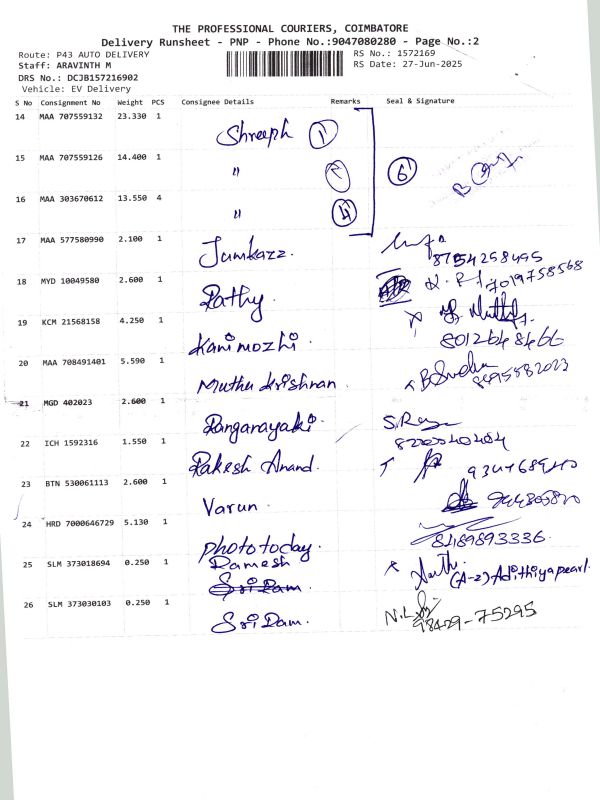 THE PROFESSIONAL COURIERS, COIMBATORE
Delivery Runsheet - PNP - Phone No.:9047080280 - Page No.:2
Route: P43 AUTO DELIVERY RS No.: 1572169
Staff: ARAVINTH M RS Date: 27-Jun-2025
DRS No.: DCJB157216902
Vehicle: EV Delivery
S No Consignment No Weight PCS Consignee Details Remarks Seal & Signature
14 MAA 707559132 23.330 1 Shreeph 1
15 MAA 707559126 14.400 1 " 6
16 MAA 303670612 13.550 4 " 4
17 MAA 577580990 2.100 1 Jumkazz. 8754258495
18 MYD 10049580 2.600 1 Pathy. 7019758568
19 KCM 21568158 4.250 1 Kanimozhi. 8012648466
20 MAA 708491401 5.590 1 Muthu krishnan
21 MGD 402023 2.600 1 Rangarayaki. S.Raga
22 ICH 1592316 1.550 1 Rakesh Anand.
23 BTN 530061113 2.600 1 Varun.
24 HRD 7000646729 5.130 1 phototoday. 8489893336.
25 SLM 373018694 0.250 1 Ramesh
Sri Ram. (A-2) Adithiyapearl.
26 SLM 373030103 0.250 1 Sri Ram. 98429-75295